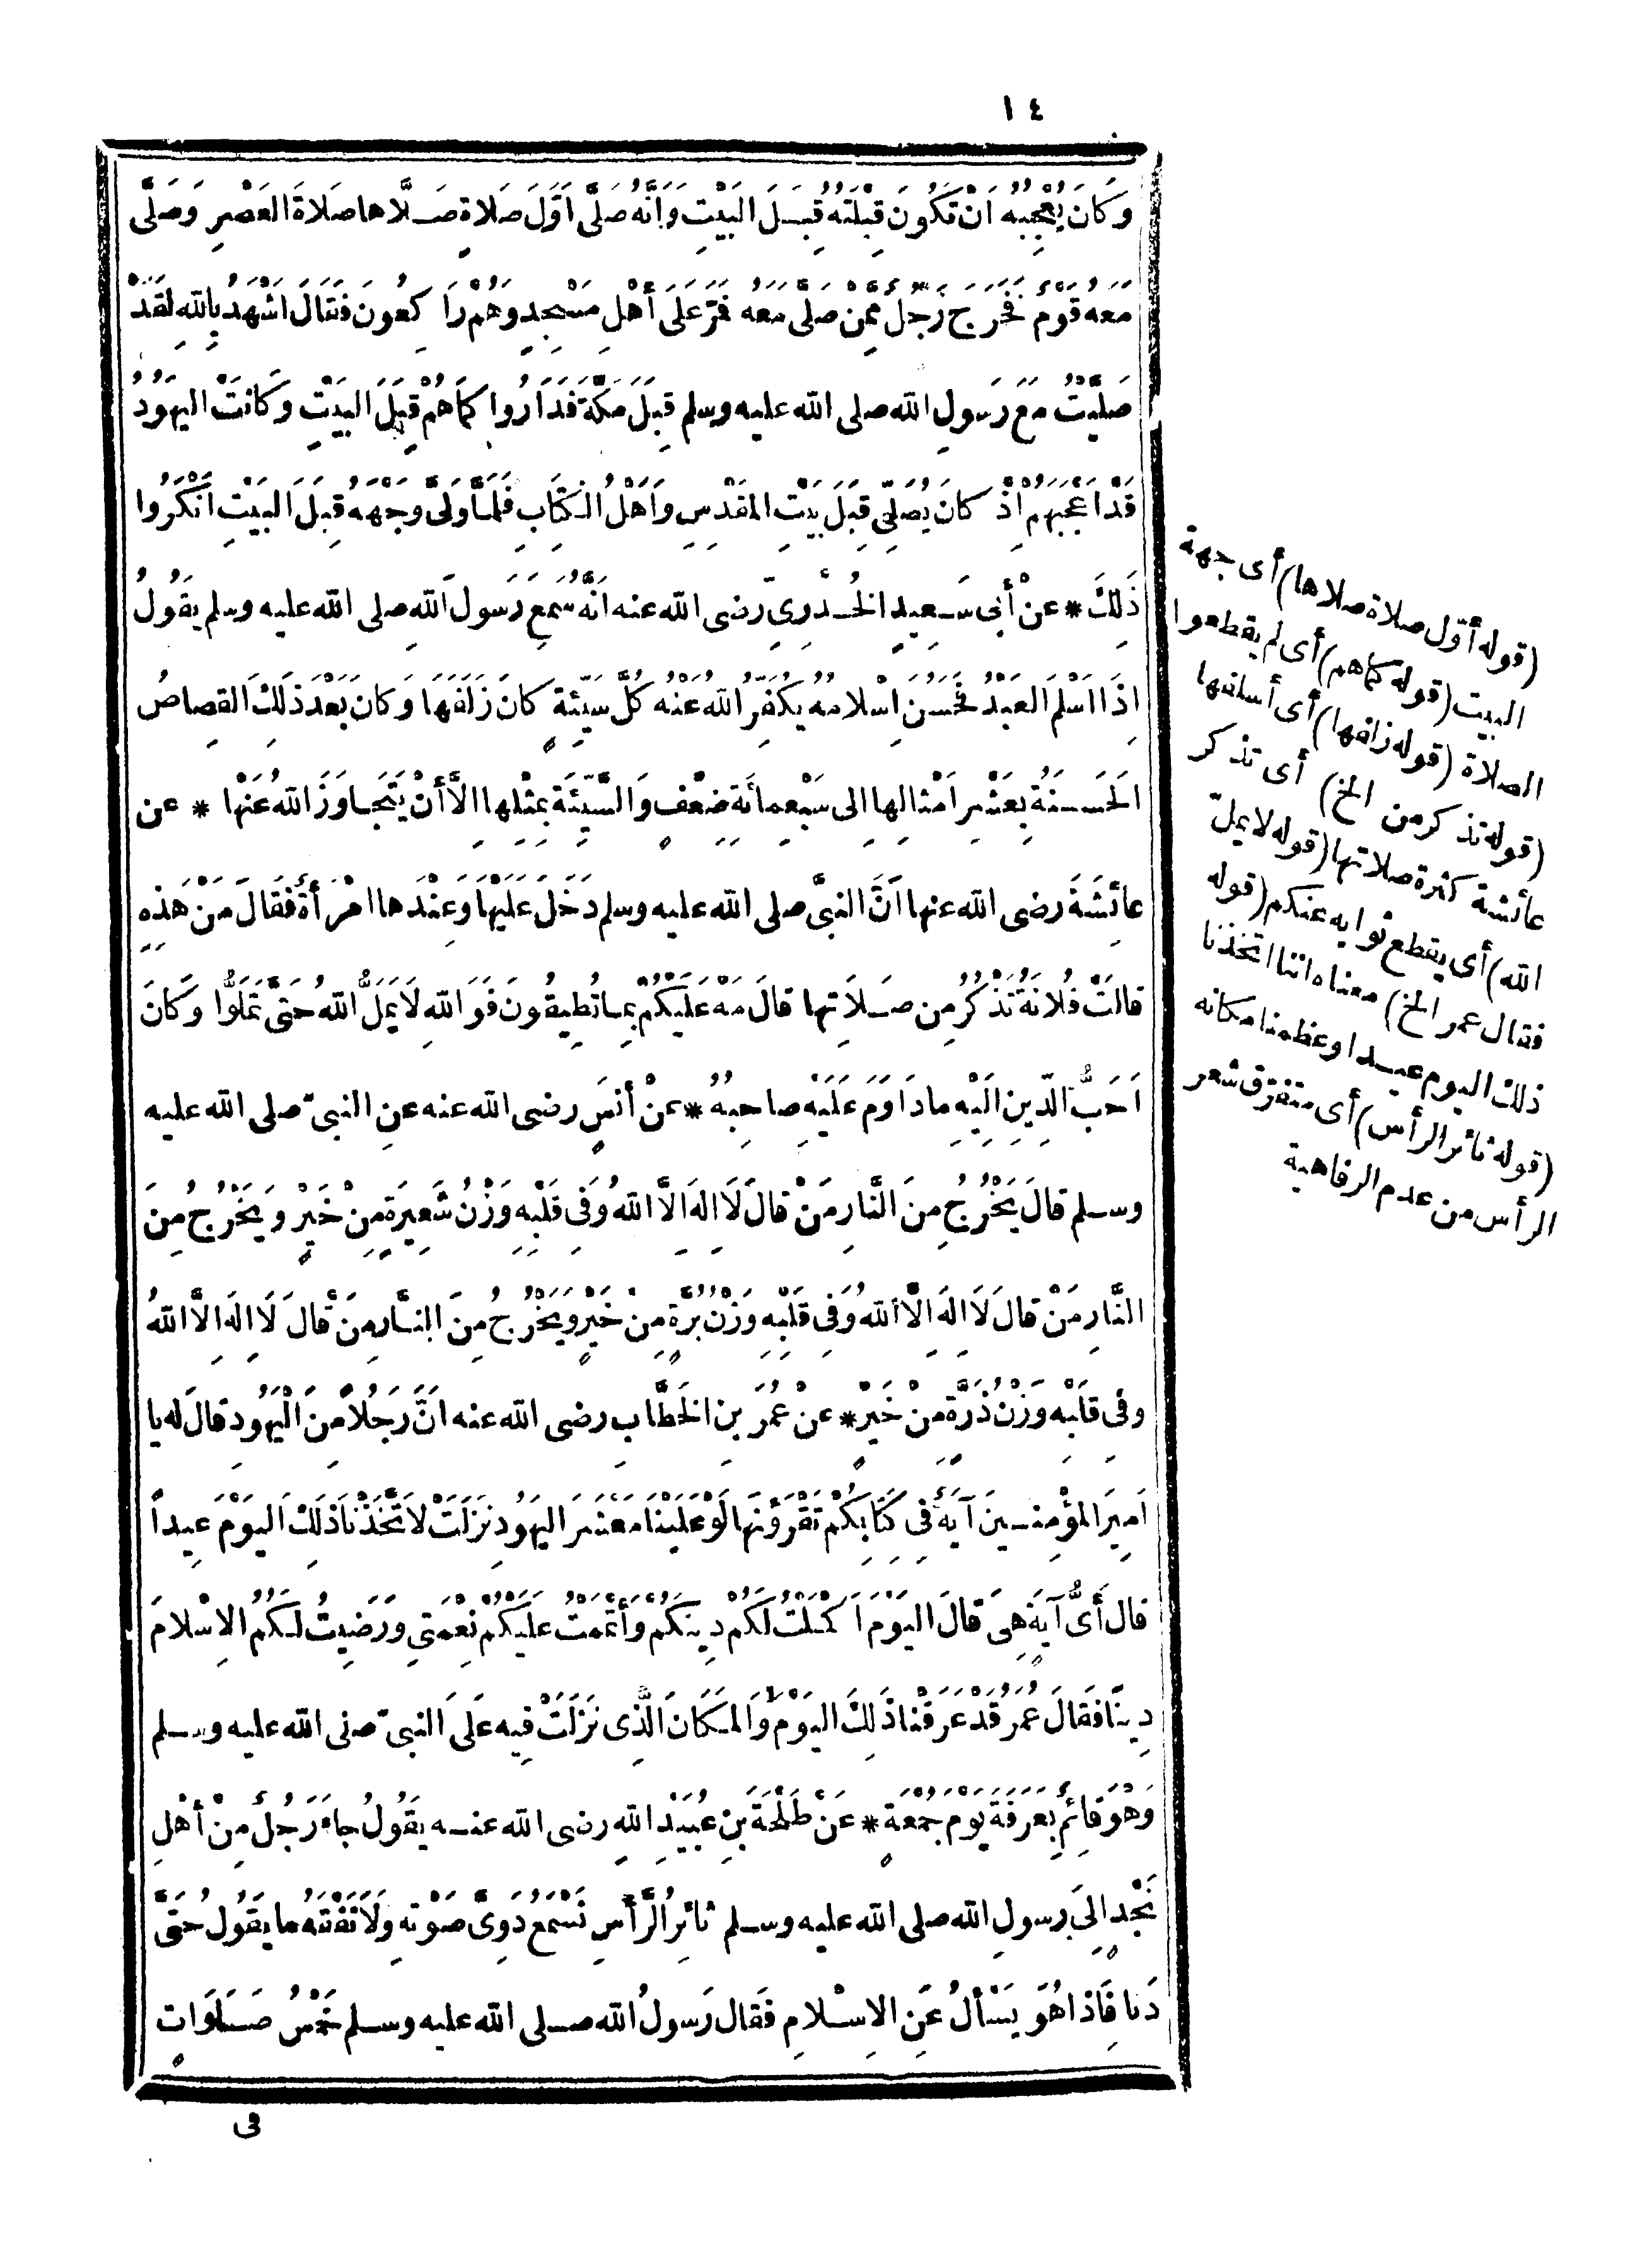 ١٤
وَكَانَ يُعْجِبُهُ اَنْ تَكُونَ قِبْلَتُهُ قِبَلَ البَيْتِ وَاَنَّهُ صَلَّى اَوَّلَ صَلاةٍ صَلَّاها صَلَاةَ العَصْرِ وَصَلَّى
مَعَهُ قَوْمٌ فَخَرَجَ رَجُلٌ مِمَّنْ صَلَّى مَعَهُ فَمَرَّ عَلَى أَهْلِ مَسْجِدٍ وَهُمْ رَاكِعُونَ فَقَالَ اَشْهَدُ بِاللهِ لَقَدْ
صَلَّيْتُ مَعَ رَسُولِ الله صلى الله عليه وسلم قِبَلَ مَكَّةَ فَدَارُوا كَمَا هُمْ قِبَلَ البَيْتِ وَكَانَتْ اليَهُودُ
قَدْ اَعْجَبَهُمْ اِذْ كَانَ يُصَلِّي قِبَلَ بَيْتِ المَقْدِسِ وَاَهْلُ الْكِتَابِ فَلَمَّا وَلَّى وَجْهَهُ قِبَلَ البَيْتِ اَنْكَرُوا
ذَلِكَ * عنْ أَبى سَعِيدٍ الخُدْرِيّ رضى الله عنه اَنَّهُ سَمِعَ رَسُولَ اللهِ صلى الله عليه وسلم يَقُولُ
اِذَا اَسْلَمَ العَبْدُ فَحَسُنَ اِسْلامُهُ يُكَفِّرُ اللهُ عنْهُ كُلَّ سَيِّئَةٍ كَانَ زَلَفَهَا وَكَانَ بَعْدَ ذَلِكَ القِصاصُ
الحَسَنَةُ بِعَشْرِ اَمْثالِها الى سَبْعِمائَةِ ضِعْفٍ وَالسَّيِّئَةُ بِمِثْلِها الاَّ أَنْ يَتَجَاوَزَ اللهُ عَنْها * عن
عائِشَةَ رضى الله عنها اَنَّ النبىَّ صلى الله عليه وسلم دَخَلَ عَلَيْها وَعِنْدَها امْرَأَةٌ فَقَالَ مَنْ هَذِهِ
قالَتْ فُلانَةُ تَذْكُرُ مِن صَلاَتِها قالَ مَهْ عَلَيْكُمْ بِما تُطِيقُونَ فَوَاللهِ لاَ يَمَلُّ اللهُ حَتَّى تَمَلُّوا وَكَانَ
اَحَبُّ الدِّينِ اِلَيْهِ مادَاوَمَ عَلَيْهِ صاحِبُهُ * عَنْ أَنَسٍ رضى الله عنه عنِ النبىّ صلى الله عليه
وسلم قالَ يَخْرُجُ مِنَ النَّارِ مَنْ قالَ لَا اِلَهَ اِلَّا اللهُ وَفِى قَلْبِهِ وَزْنُ شَعِيرَةٍ مِنْ خَيْرٍ وَيَخْرُجُ مِنَ
النَّارِ مَنْ قالَ لَا اِلهَ اِلَّا اللهُ وَفِى قَلْبِهِ وَزْنُ بُرَّةٍ مِنْ خَيْرٍ وَيَخْرُجُ مِنَ النَّارِ مَنْ قَالَ لَا اِلَهَ اِلَّا اللهُ
وفِى قَلْبِهِ وَزْنُ ذَرَّةٍ مِنْ خَيْرٍ * عنْ عُمَرَ بنِ الخَطَّابِ رضى الله عنه اَنَّ رَجُلاً مِنَ الْيَهُودِ قالَ له يا
اَمِيرَ المُؤْمِنِينَ آيَةٌ فى كِتَابِكُمْ تَقْرَؤُنَها لَوْ عَلَيْنَا مَعْشَرَ اليَهُودِ نَزَلَتْ لاَتَّخَذْنَا ذَلِكَ اليَوْمَ عِيداً
قال أَىُّ آيَةٍ هِىَ قالَ اليَوْمَ اَكْمَلْتُ لَكُمْ دِينَكُمْ وَأَتْمَمْتُ عَلَيْكُمْ نِعْمَتِى وَرَضِيتُ لَكُمُ الاِسْلامَ
دِينًا فَقالَ عُمَرُ قَدْ عَرَفْنا ذَلِكَ اليَوْمَ وَالمَكَانَ الَّذِى نَزَلَتْ فِيهِ عَلَى النبىّ صلى الله عليه وسلم
وَهْوَ قائِمٌ بِعَرَفَةَ يَوْمَ جُمْعَةٍ * عَنْ طَلْحَةَ بنِ عُبَيْدِ اللهِ رضى الله عنه يَقُولُ جاءَ رَجُلٌ مِنْ أَهْلِ
نَجْدٍ اِلَى رسولِ الله صلى الله عليه وسلم ثائِرُ الرَّأْسِ نَسْمَعُ دَوِىَّ صَوْتِهِ وَلَا نَفْقَهُ ما يَقُولُ حتَّى
دَنا فَاِذا هُوَ يَسْأَلُ عَنِ الاِسْلامِ فَقَال رَسولُ الله صلى الله عليه وسلم خَمْسُ صَلَوَاتٍ
فى
(قوله أوّل صلاة صلاها) أى جهة
البيت (قوله كما هم) أى لم يقطعوا
الصلاة (قوله زلفها) أى أسلفها
(قوله تذكر من الخ) أى تذكر
عائشة كثرة صلاتها (قوله لا يملّ
الله) أى يقطع ثوابه عنكم (قوله
فقال عمر الخ) معناه اننا اتخذنا
ذلك اليوم عيدا وعظمنا مكانه
(قوله ثائر الرأس) أى متفرّق شعر
الرأس من عدم الرفاهية